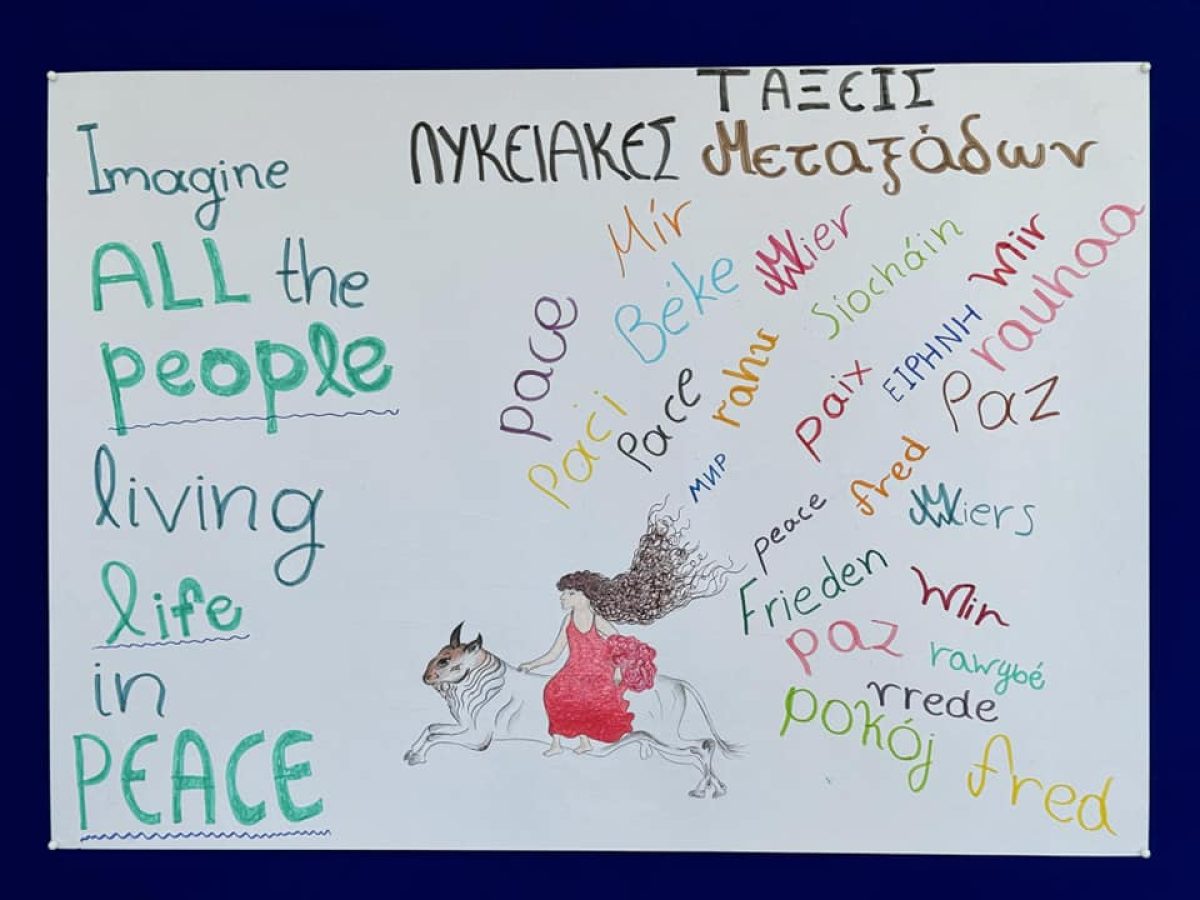 Imagine
ALL the
people
living
life
in
PEACE
ΤΑΞΕΙΣ
ΛΥΚΕΙΑΚΕΣ Μεταξάδων
Mír
Béke
Wier
Siocháin
Mir
rauhaa
pace
Paċi
Pace
rahu
paix
ΕΙΡΗΝΗ
Paz
мир
peace
fred
Wiers
Frieden
Mir
paz
rawybé
vrede
pokój
fred